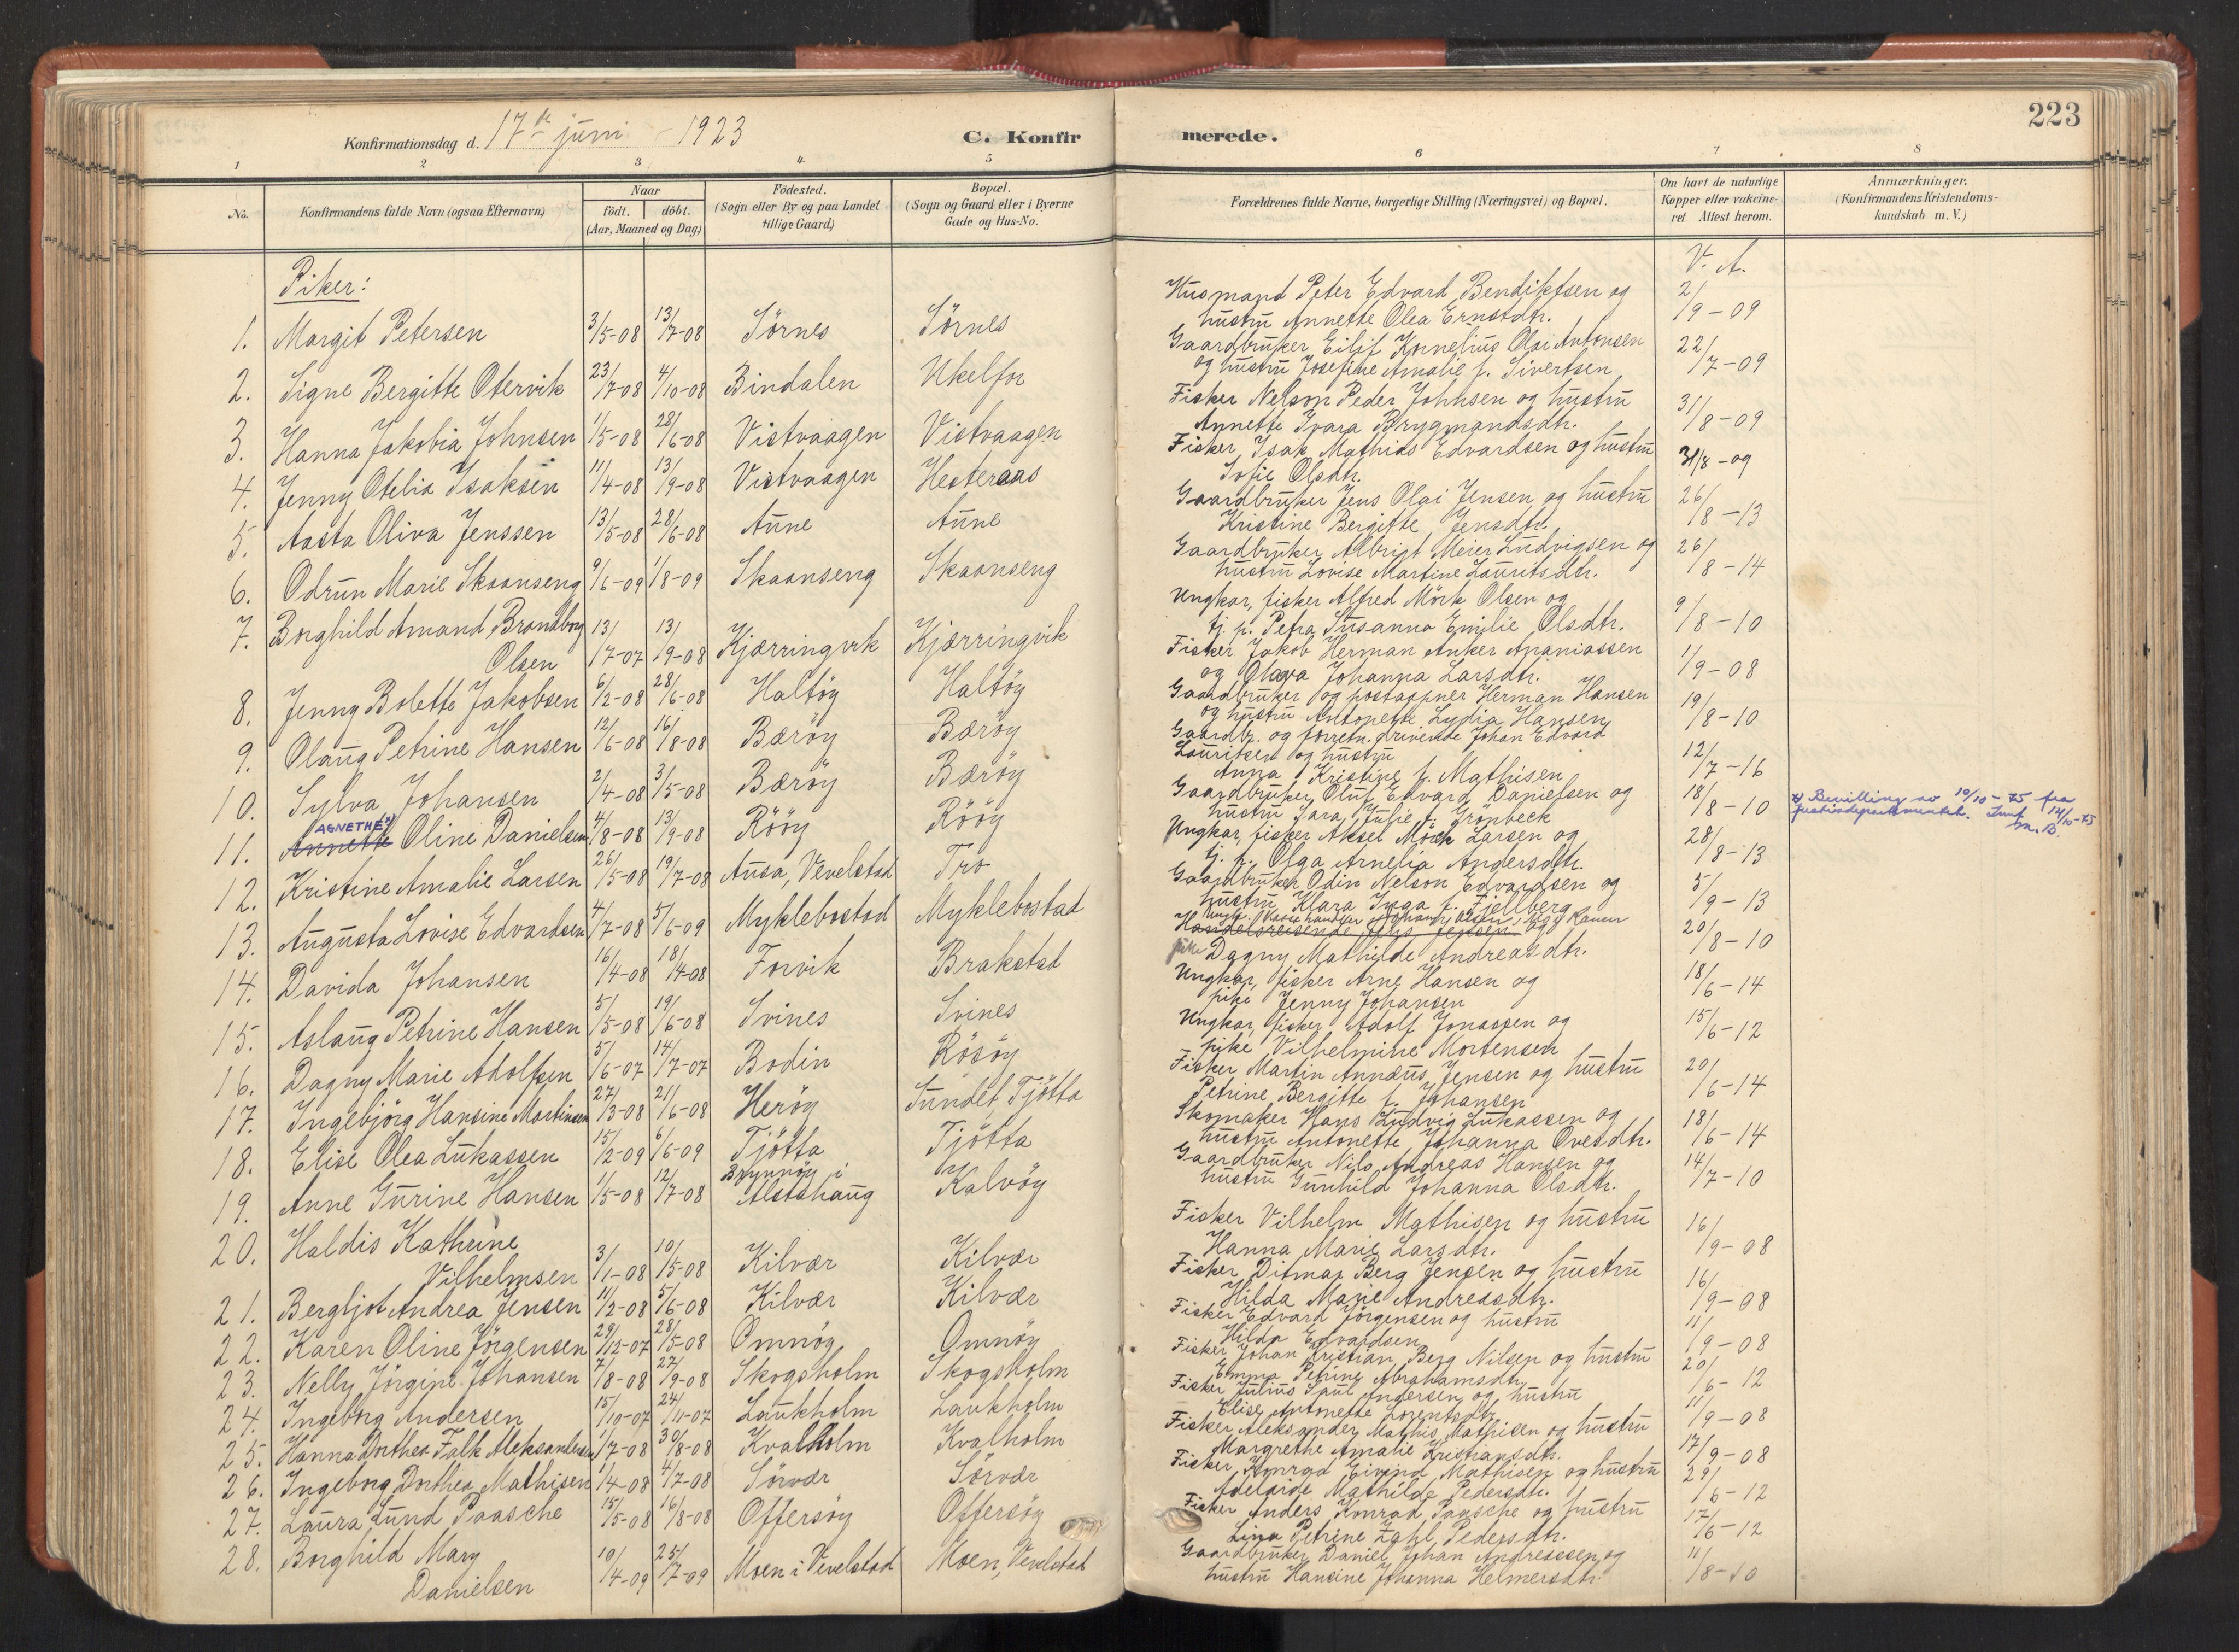 223
Konfirmationsdag d. 17de juni - 1923
C. Konfirmerede.
1 2 3 4 5 6 7 8
No.
Konfirmandens fulde Navn (ogsaa Efternavn)
Naar
födt. döbt.
(Aar, Maaned og Dag)
Födested.
(Sogn eller By og paa Landet
tillige Gaard)
Bopæl.
(Sogn og Gaard eller i Byerne
Gade og Hus-No.
Forældrenes fulde Navne, borgerlige Stilling (Næringsvei) og Bopæl.
Om havt de naturlige
Kopper eller vakcine-
ret Attest herom.
Anmærkninger.
(Konfirmandens Kristendoms-
kundskab m. V.)
Piker:
V. A.
1. Margit Petersen 3/5-08 13/7-08 Sörnes Sörnes
2. Signe Bergitte Otervik 23/7-08 4/10-08 Bindalen Ukelfor
3. Hanna Jakobia Johnsen 1/5-08 28/6-08 Vistvaagen Vistvaagen
4. Jenny Otelia Isaksen 11/4-08 13/9-08 Vistvaagen Hesteraas
5. Aasta Oliva Jenssen 13/5-08 28/6-08 Aune Aune
6. Odrun Marie Skaanseng 9/6-09 1/8-09 Skaanseng Skaanseng
7. Borghild Amand Brandborg
Olsen 13/7-07 13/9-08 Kjærringvik Kjærringvik
8. Jenny Bolette Jakobsen 6/2-08 28/6-08 Haltöy Haltöy
9. Olaug Petrine Hansen 12/6-08 16/8-08 Bæröy Bæröy
10. Sylva Johansen 2/4-08 3/5-08 Bæröy Bæröy
AGNETHE x)
11. Annette Oline Danielsen 4/8-08 13/9-08 Rööy Rööy
12. Kristine Amalie Larsen 26/5-08 19/7-08 Ausa, Vevelstad Tro
13. Augusta Lovise Edvardsen 4/7-08 5/6-09 Myklebostad Myklebostad
14. Davida Johansen 16/4-08 18/4-08 Forvik Brakstad
15. Aslaug Petrine Hansen 5/5-08 19/6-08 Svines Svines
16. Dagny Marie Adolfsen 5/6-07 14/7-07 Bodin Rösöy
17. Ingebjörg Hansine Martinsen 27/3-08 21/6-08 Heröy Sundet, Tjötta
18. Elise Olea Lukassen 15/2-09 6/6-09 Tjötta Tjötta
Brynnöy i
19. Anne Gurine Hansen 1/5-08 12/7-08 Alstahaug Kalvöy
20. Haldis Kathrine
Vilhelmsen 3/1-08 10/5-08 Kilvær Kilvær
21. Bergljot Andrea Jensen 11/2-08 5/6-08 Kilvær Kilvær
22. Karen Oline Jörgensen 29/12-07 28/5-08 Omnöy Omnöy
23. Nelly Jörgine Johansen 7/8-08 27/9-08 Skogsholm Skogsholm
24. Ingeborg Andersen 15/10-07 24/11-07 Laukholm Laukholm
25. Hanna Dorthea Falk Aleksandersen 1/7-08 30/8-08 Kvalholm Kvalholm
26. Ingeborg Dorthea Mathisen 1/4-08 4/7-08 Sörvær Sörvær
27. Laura Lund Paasche 15/5-08 16/8-08 Offersöy Offersöy
28. Borghild Mary
Danielsen 10/4-09 25/7-09 Moen i Vevelstad Moen, Vevelstad
Husmand Peter Edvard Bendiktsen og 2/9-09
hustru Annette Olea Ernstdtr.
Gaardbruker Eilif Kornelius Olai Antonsen 22/7-09
og hustru Josefine Amalie f. Sivertsen
Fisker Nelson Peder Johnsen og hustru 31/8-09
Annette Ivara Brygmandsdtr.
Fisker, Isak Mathias Edvardsen og hustru 31/8-09
Sofie Olsdtr.
Gaardbruker Jens Olai Jensen og hustru 26/8-13
Kristine Bergitte Jensdtr.
Gaardbruker Albrigt Meier Ludvigsen og 26/8-14
hustru Lovise Martine Lauritsdtr.
Ungkar, fisker Alfred Mörk Olsen og 9/8-10
tj. p. Petra Susanna Emilie Olsdtr.
Fisker Jakob Herman Anker Ananiassen 1/9-08
og Olava Johanna Larsdtr.
Gaardbruker og postaapner Herman Hansen 19/8-10
og hustru Antonette Lydia Hansen
Gaardbr. og forretn. drivende Johan Edvard
Lauritsen og hustru 12/7-16
Anna Kristine f. Mathisen
Gaardbruker Oluf Edvard Danielsen og 18/8-10
hustru Sara Julie f. Grönbeck
x) Bevilling av 10/10-75 fra
Justisdepartementet. Innf 14/10-75
Ungkar, fisker Aksel Mörk Larsen og 28/8-13
tj. p. Olga Arnelia Andersdtr.
Gaardbruker Odin Nelson Edvardsen og 5/9-13
hustru Klara Inga f. Fjellberg
Handelsreisende Jens Jensen og 20/8-10
pike Dagny Mathilde Andreasdtr.
Ungkar, fisker Arne Hansen og 18/6-14
pike Jenny Johansen
Ungkar, fisker Adolf Jonassen og 15/6-12
pike Vilhelmine Mortensen
Fisker Martin Annæus Jensen og hustru 20/6-14
Petrine Bergitte f. Johansen
Skomaker Hans Ludvig Lukassen og 18/6-14
hustru Antonette Johanna Ovesdtr.
Gaardbruker Nils Andreas Hansen og 14/7-10
hustru Gunhild Johanna Olsdtr.
Fisker Vilhelm Mathisen og hustru 16/9-08
Hanna Marie Larsdtr.
Fisker Ditmar Berg Jensen og hustru 16/9-08
Hilda Marie Andreasdtr.
Fisker Edvard Jörgensen og hustru 11/9-08
Hilda Edvardsen
Fisker Johan Kristian Berg Nilsen og hustru 20/6-12
Emma Petrine Abrahamsdtr.
Fisker Julius Saul Andersen og hustru 11/9-08
Elise Antonette Lorentsdtr.
Fisker Aleksander Mathis Mathisen og hustru 17/9-08
Margrethe Amalie Kristiansdtr.
Fisker Konrad Eivind Mathisen og hustru 29/6-12
Adelaide Mathilde Pedersdtr.
Fisker Anders Konrad Paasche og hustru 17/6-12
Lina Petrine Zahl Pedersdtr.
Gaardbruker Daniel Johan Andreassen og 11/8-10
hustru Hansine Johanna Helmersdtr.